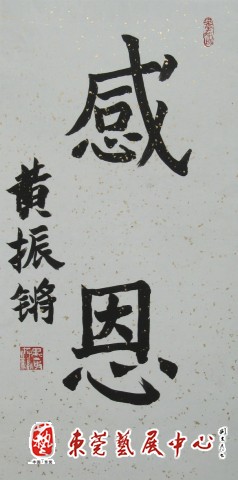 感恩
黄振锵
东莞藝展中心